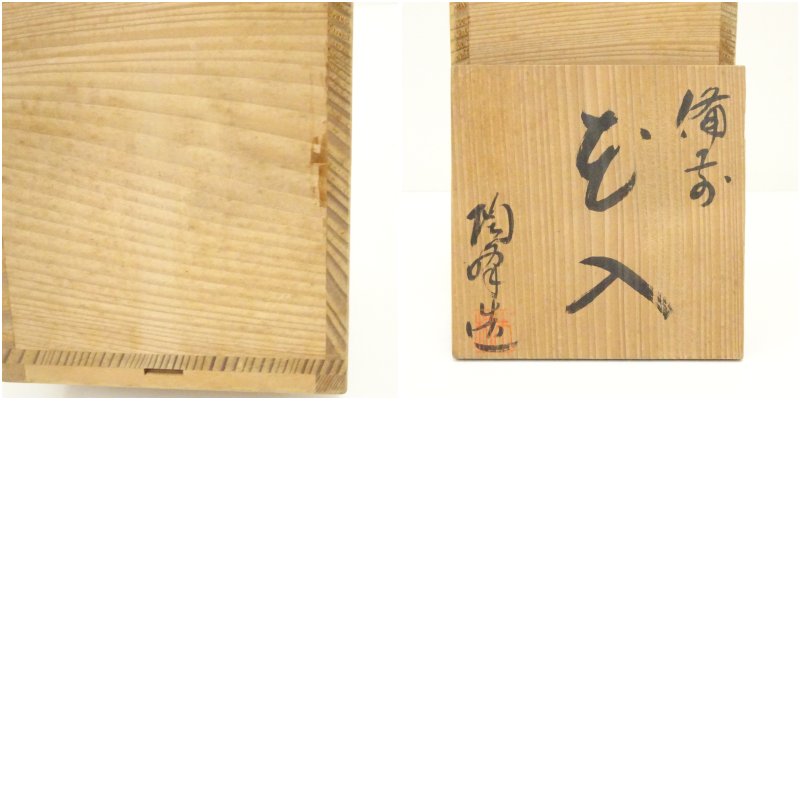 備前
花入
陶峰造